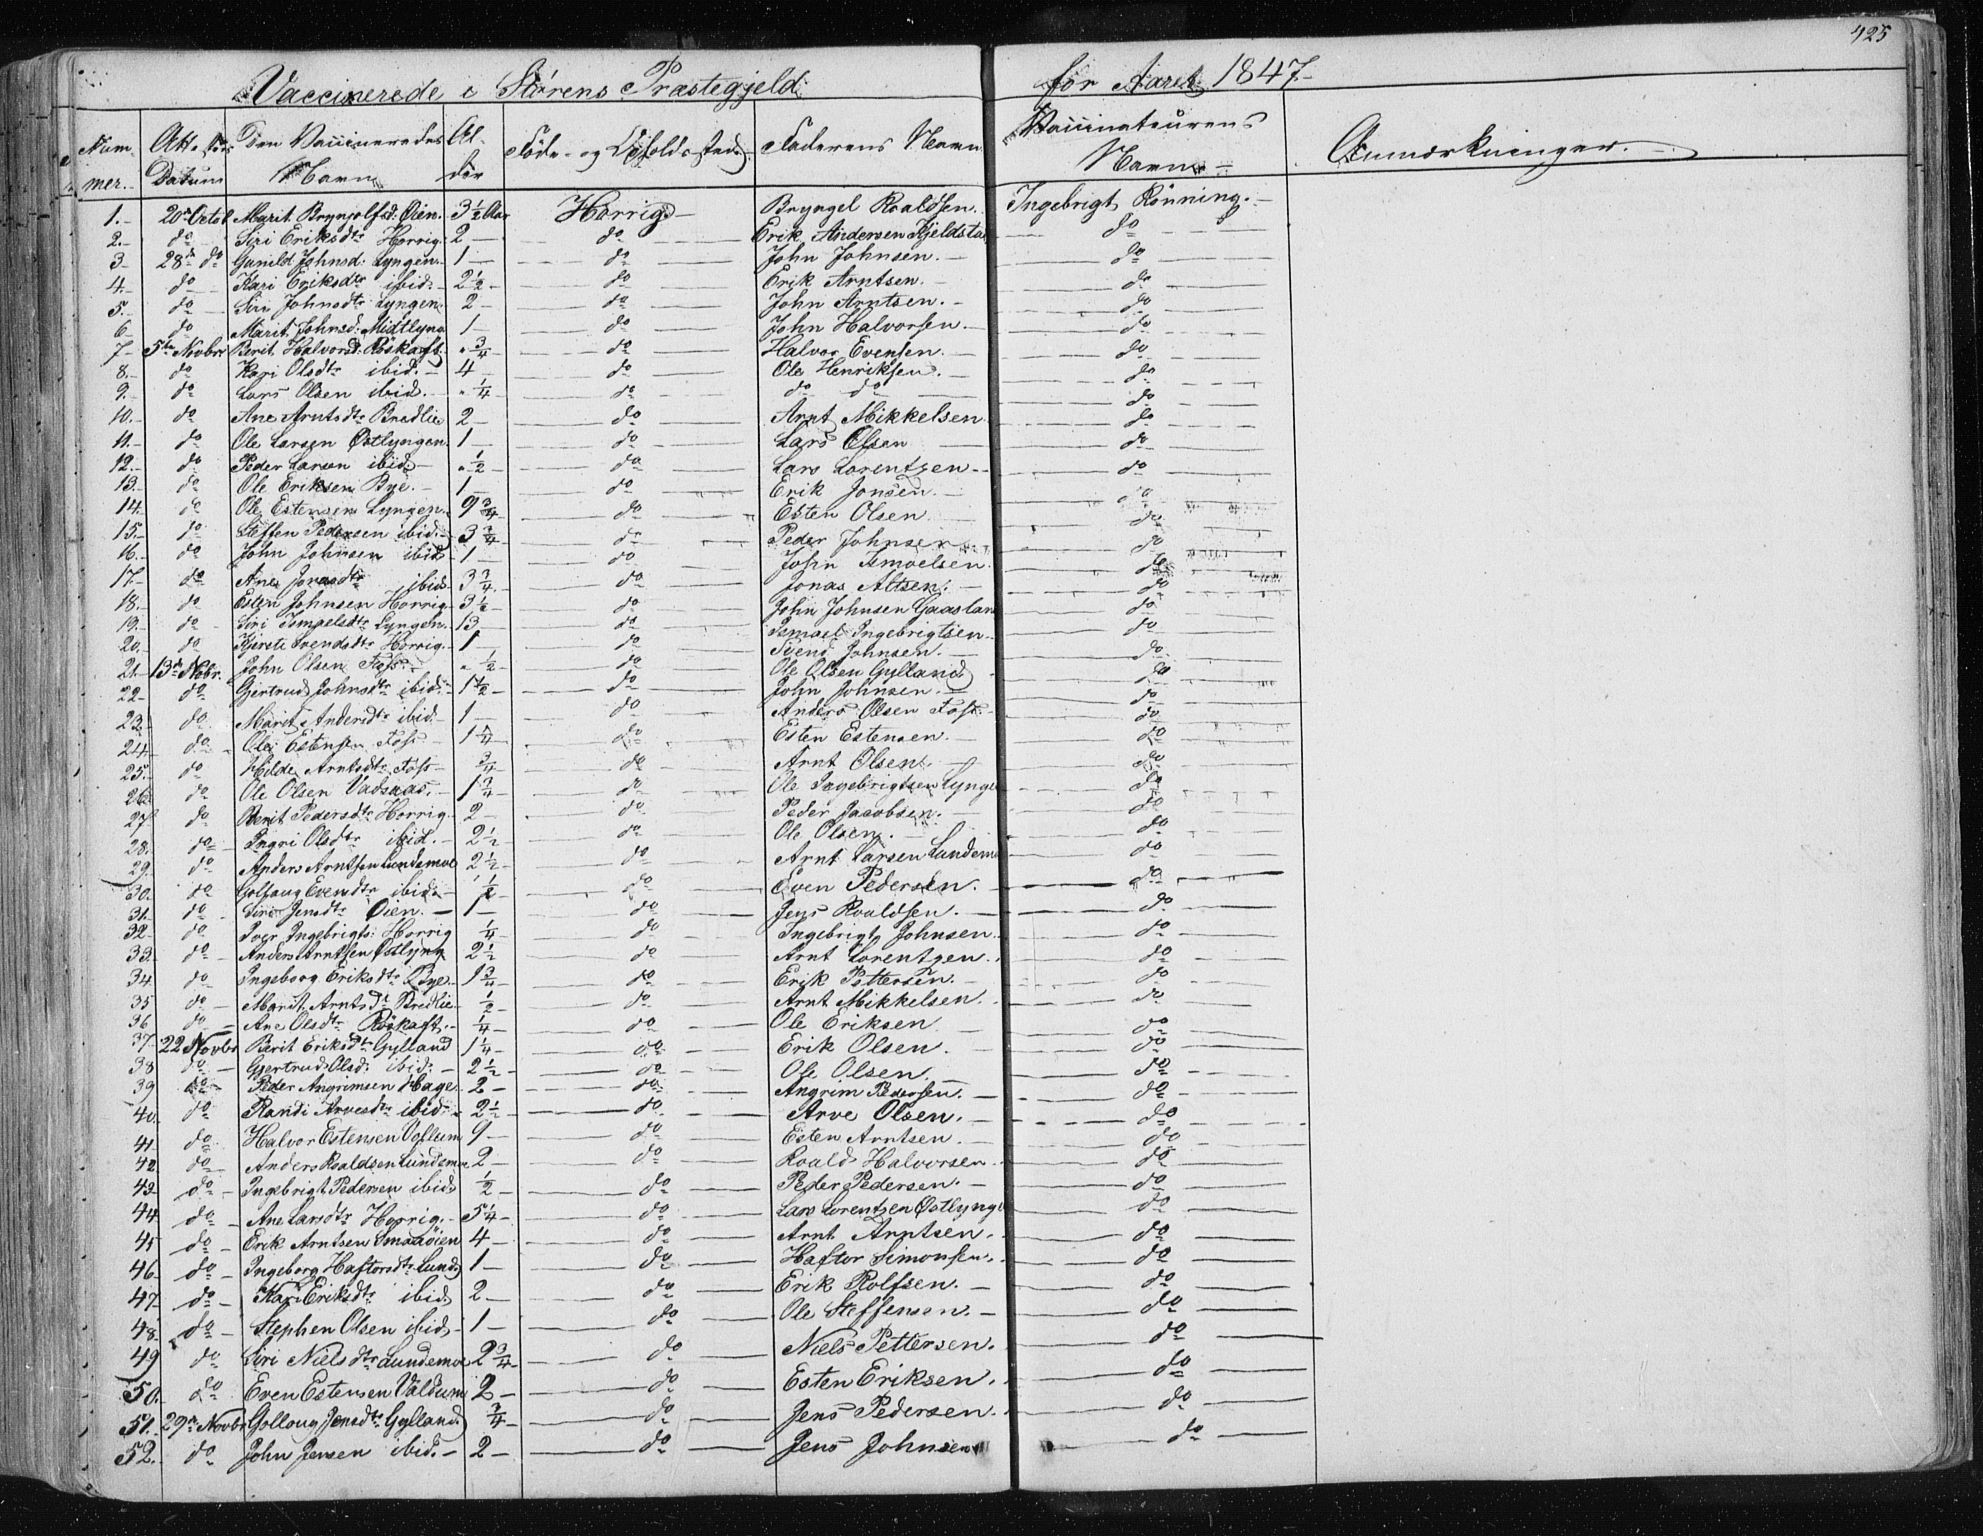 425
Vaccinerede i Størens Præstegjeld for Aaret 1847.
Num-mer. Datum Den Vaccineredes Navn Al-der Føde- og Opholdssted Faderens Navn Vaccinateurens Navn Anmærkninger.
1. 20de Octob Marit Brynjolfsd. Øien. 3 1/2 Aar Horrig Bryngel Roaldsen. Ingebrigt Rönning.
2. do Siri Eriksdtr Horrig. 2 do Erik Andersen Kjeldstad do
3 28de do Gunild Johnsd. Lyngen. 1 do John Johnsen. do
4. do Kari Eriksdtr ibid. 2 1/2 do Erik Arntsen. do
5. do Siri Johnsdtr Lyngen. 2 do John Arntsen. do
6 do Marit Johnsd. Midtlyng 1 do John Halvorsen. do
7 5te Novbr Berit Halvorsd. Röskaft. " 3/4 do Halvor Evensen. do
8. do Kari Olsdtr ibid. 4 do Ole Henriksen. do
9. do Lars Olsen ibid. " 1/4 do do do do
10. do Ane Arntsdtr Bredlie 2 do Arnt Mikkelsen do
11. do Ole Larsen Østlyngen 1 do Lars Olsen do
12. do Peder Larsen ibid. " 1/2 do Lars Lorentzen do
13. do Ole Eriksen Bye. 1 do Erik Jonsen. do
14. do Ole Estensen Lyngen. 9 3/4 do Esten Olsen do
15. do Steffen Pedersen ibid. 3 3/4 do Peder Johnsen do
16. do John Johnsen ibid 1 do John Ismoelsen. do
17. do Ane Jonasdtr ibid 3 3/4 do Jonas Altsen. do
18. do Esten Johnsen Horrig. 3 1/2 do John Johnsen Gaasland do
19. do Siri Ismoelsdtr Lyngen. 13 do Ismael Ingebrigtsen. do
20. do Kjersti Svendsdtr Horrig. 1 do Svend Johnsen. do
21. 13de Nobr. John Olsen Foss " 1/2 do Ole Olsen Gylland do
22 do Gjertrud Johnsdtr ibid. 1 1/2 do John Johnsen. do
23. do Marit Andersdtr ibid. 1 do Anders Olsen Foss. do
24. do Ole Estensen Foss 1 3/4 do Esten Estensen. do
25. do Hilde Arntsdtr Foss 3/4 do Arnt Olsen. do
26 do Ole Olsen Vadsaas. 1 3/4 do Ole Ingebrigtsen Lynge do
27 do Berit Pedersdtr Horrig. 2 do Peder Jacobsen. do
28. do Ingri Olsdtr ibid. 2 1/2 do Ole Olsen. do
29. do Anders Arntsen Lundemoe 2 1/2 do Arnt Larsen Lundemo do
30. do Golfaug Evensdtr ibid. 1/2 do Even Pedersen. do
31. do Siri Jensdtr Øien. 1 do Jens Roaldsen. do
32 do Iver Ingebrigts: Horrig 1/4 do Ingebrigt Johnsen. do
33. do Anders Arntsen Østlyng 2 1/2 do Arnt Lorentzen. do
34. do Ingeborg Eriksdtr Bye. 1 3/4 do Erik Pettersen. do
35 do Marit Arntsdtr Bredlie 1/2 do Arnt Mikkelsen. do
36 do Ane Olsdtr Röskaft. 1/4 do Ole Eriksen do
37. 22 Novbr Berit Eriksdtr Gylland 1 1/4 do Erik Olsen. do
38 do Gjertrud Olsd. ibid. 2 1/2 do Ole Olsen. do
39 do Peder Angrimsen Hage. 2 do Angrim Pedersen. do
40. do Randi Arvesdtr ibid. 2 1/2 do Arve Olsen. do
41. do Halvor Estensen Vollum 9 do Esten Arntsen. do
42. do Anders Roaldsen Lundemo 2 do Roald Halvorsen. do
43. do Ingebrigt Pedersen ibid. 1/2 do Peder Pedersen. do
44. do Ane Larsdtr Horrig. 5 1/4 do Lars Lorentzen Østlynge do
45 do Erik Arntsen Smaaöien 4 do Arnt Arntsen. do
46. do Ingeborg Haftorsdtr Lund 1 do Haftor Simonsen. do
47. do Kari Eriksdtr ibid 2 do Erik Rolfsen. do
48. do Stephen Olsen ibid 1 do Ole Steffensen. do
49 do Siri Nielsdtr Lundemoe 2 3/4 do Niels Pettersen. do
50. do Even Estensen Valdum 2 do Esten Eriksen. do
51. 29de Novbr Gollaug Jensdtr Gylland 3/4 do Jens Pedersen. do
52. do John Jensen ibid. 2 do Jens Johnsen do